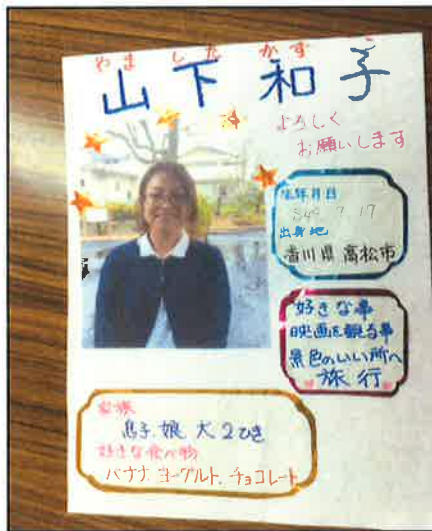 やま した かず こ
山下和子
よろしく
お願いします
生年月日
S49 7 17
出身地
香川県 高松市
好きな事
映画を観る事
景色のいい所へ
旅行
家族
息子、娘 犬2ひき
好きな食べ物
バナナ ヨーグルト、チョコレート